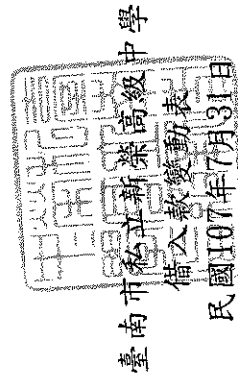 臺南市私立新榮高級中學
借入款變動表
民國107年7月31日